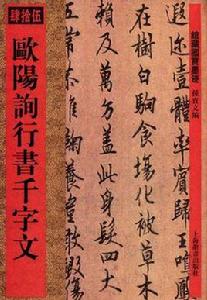 肆拾伍
歐陽詢行書千字文
館藏國寶墨迹
孫寶文編
上海辭書出版社
遐迩壹體率賓歸王鳴鳳
在樹白駒食場化被草木
賴及萬方蓋此身髮四大
惟鞠養豈敢毀